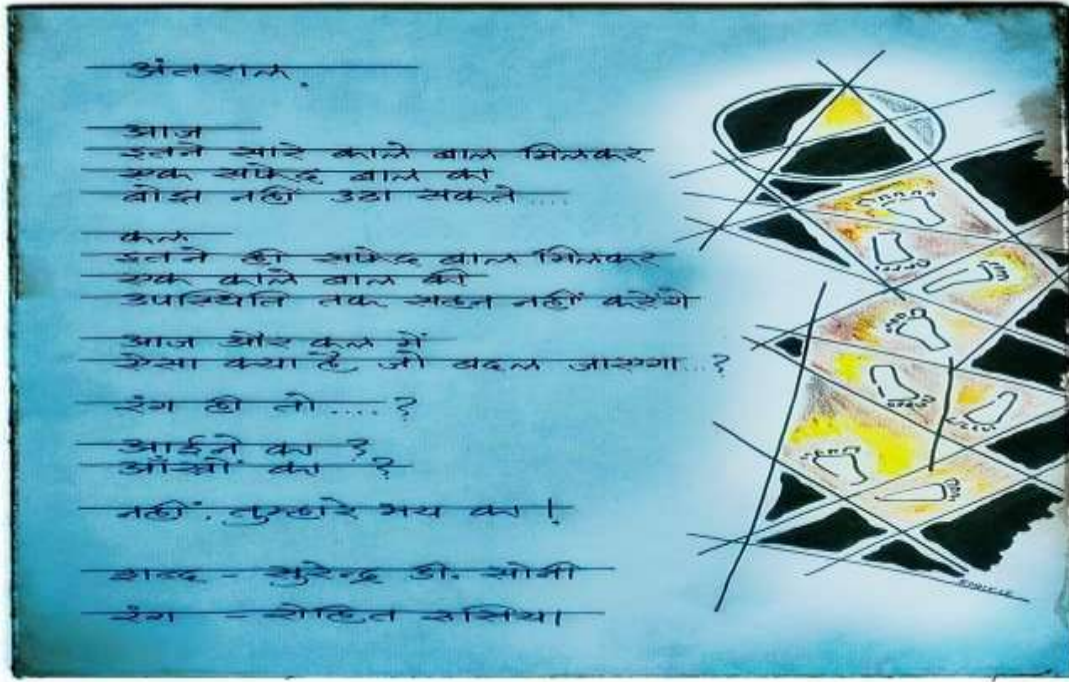 अंतराल.
आज
इतने सारे काले बाल मिलकर
एक सफेद बाल का
बोझ नहीं उठा सकते ....
कल
इतने ही सफेद बाल मिलकर
एक काले बाल की
उपस्थिति तक सहन नहीं करेंगे
आज और कल में
ऐसा क्या है जो बदल जाएगा...?
रंग ही तो ....?
आईने का ?
आँखों का ?
नहीं. तुम्हारे भय का !
शब्द - सुरेन्द्र डी. सोनी
रंग - रोहित रूसिया